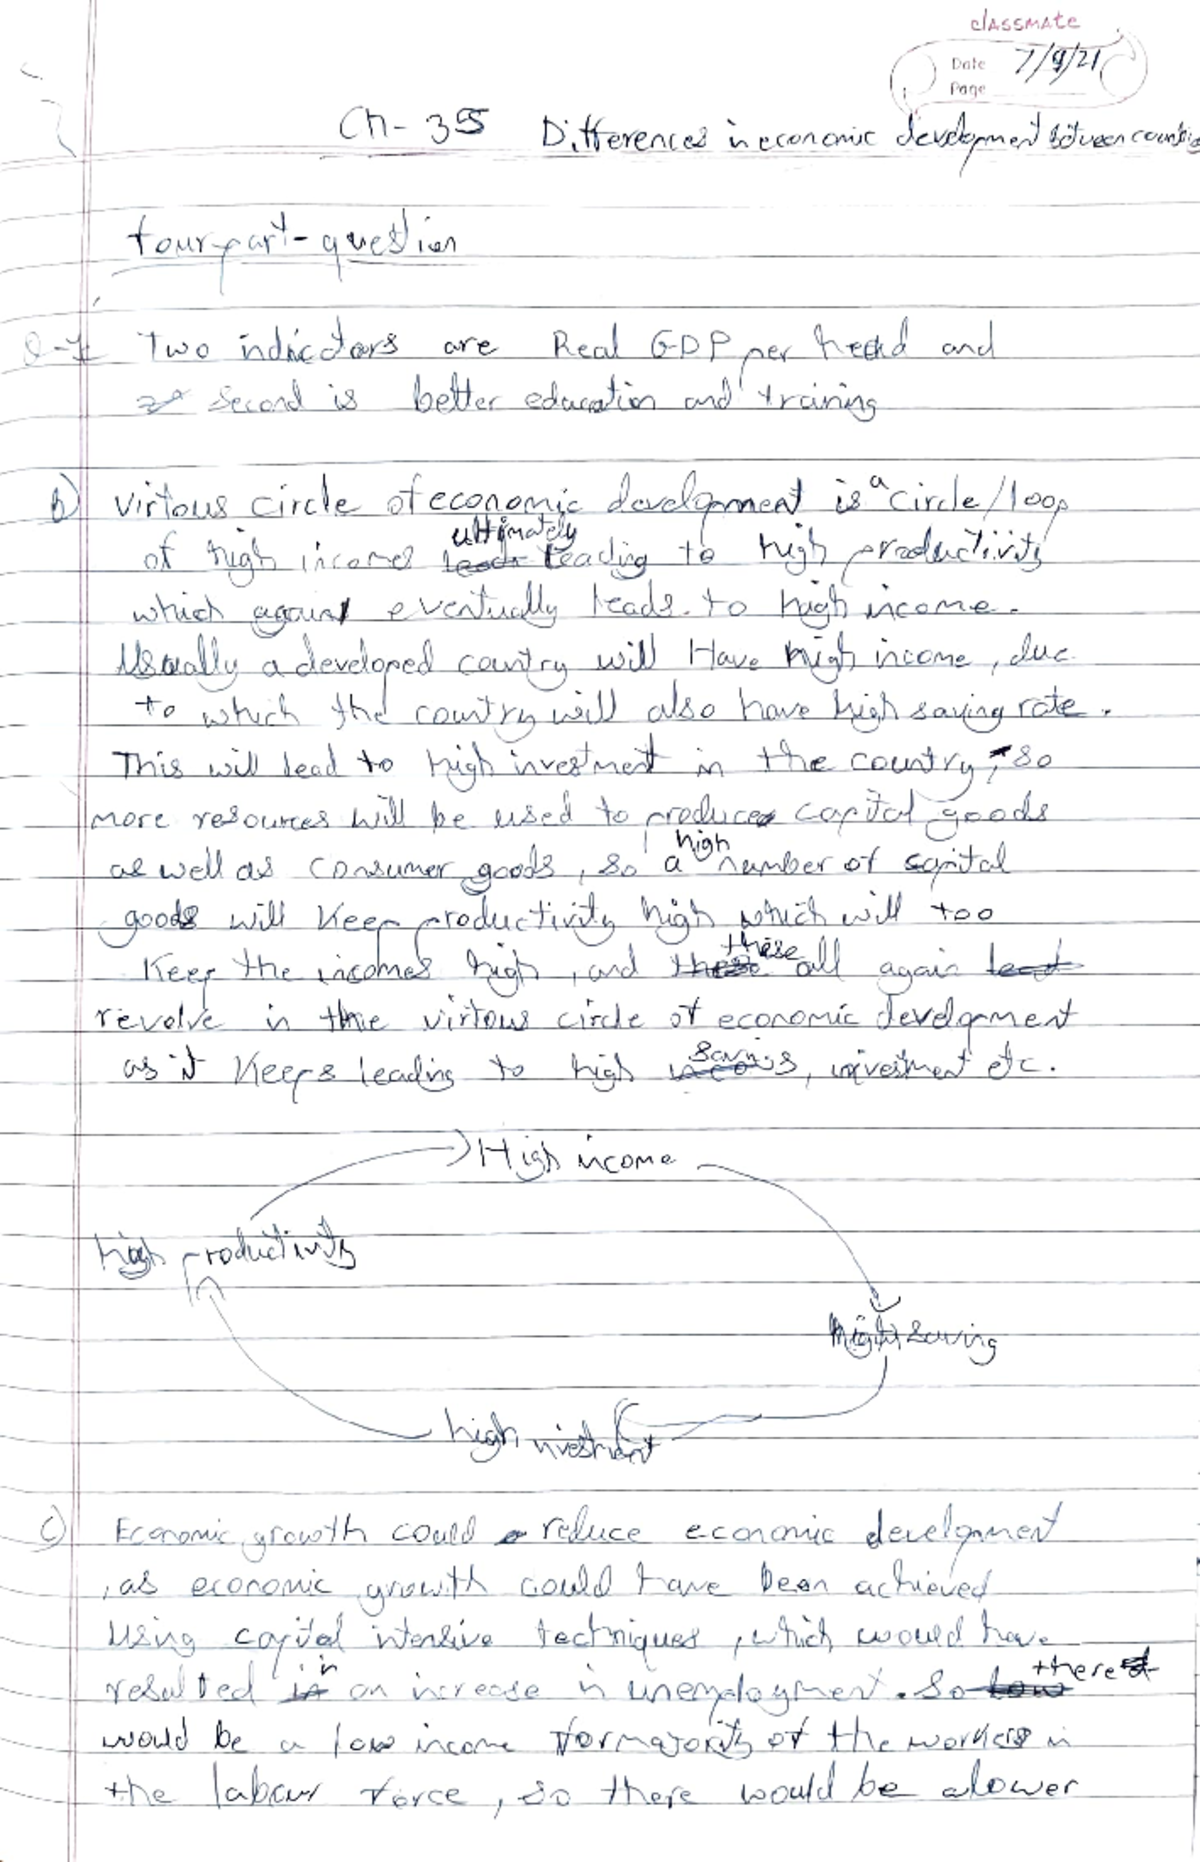 classmate
Date 7/9/21
Page
Ch-35 Differences in economic development between countries
Four part-question
Two indictors are Real GDP per head and
second is better education and training
B) Virtous circle of economic development is a circle/loop
of high income ultimately leading to high productivity
which again eventually leads to high income.
Usually a developed country will Have high income, due
to which the country will also have high saving rate.
This will lead to high investment in the country, so
more resources will be used to produce capital goods
as well as consumer goods, so a high number of capital
goods will keep productivity high which will too
keep the incomes high, and these all again
revolve in the virtous circle of economic development
as it keeps leading to high savings, investment etc.
High income
high productivity
high saving
high investment
C) Economic growth could reduce economic development
, as economic growth could have been achieved
using capital intensive techniques, which would have
resulted in an increase in unemployment. So there
would be a low income for majority of the workers in
the labour force, so there would be a lower